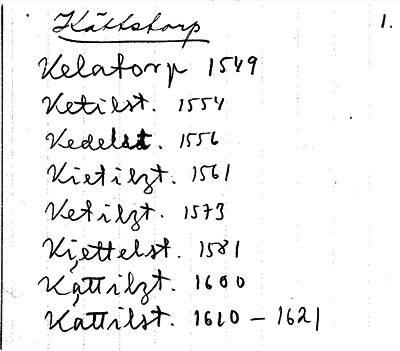 Kättstorp 1.
Kelatorp 1549
Ketilst. 1554
Kedelst. 1556
Kietilzt. 1561
Ketilzt. 1573
Kiettelst. 1581
Kättilzt. 1600
Kättilst. 1610 – 1621